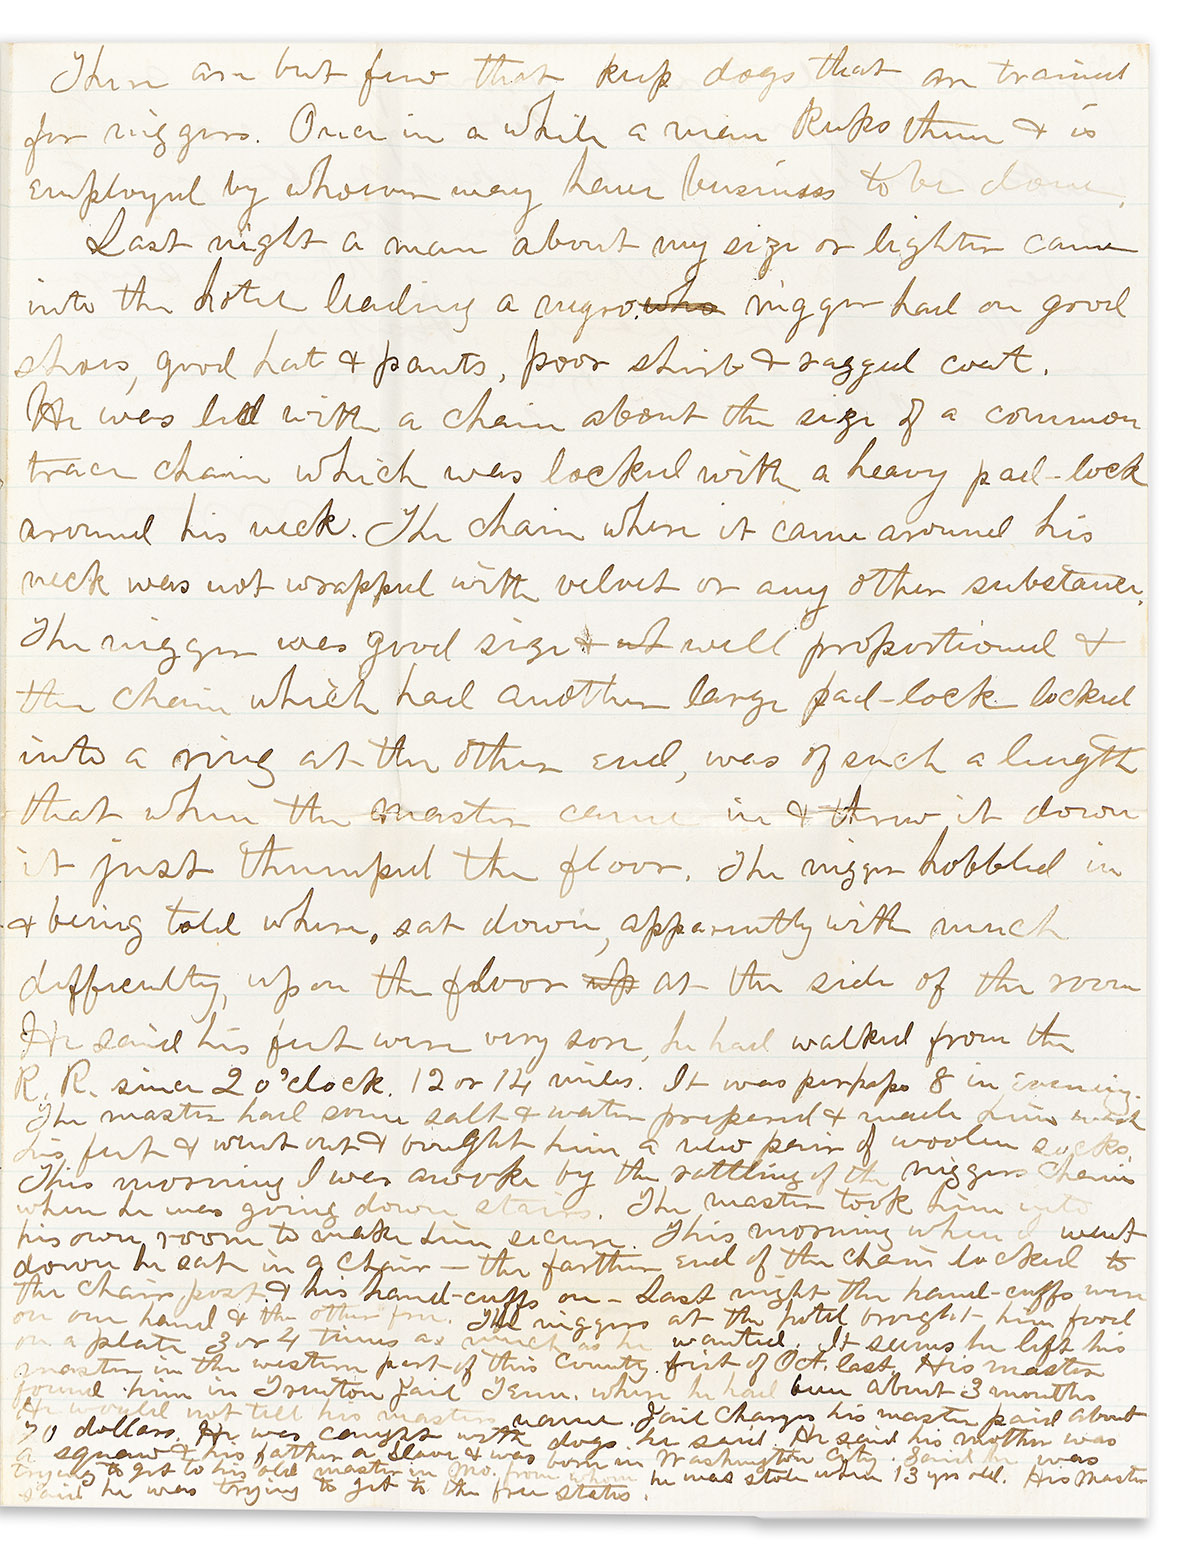 There are but few that keep dogs that are trained
for niggers. Once in a while a man keeps them & is
employed by whoever may have business to be done.
Last night a man about my size or lighter came
into the hotel leading a negro. who nigger had on good
shoes, good hat & pants, poor shirt & ragged coat.
He was led with a chain about the size of a common
trace chain which was locked with a heavy pad-lock
around his neck. The chain where it came around his
neck was not wrapped with velvet or any other substance.
The nigger was good size & well proportioned &
the chain which had another large pad-lock locked
into a ring at the other end, was of such a length
that when the master came in & threw it down
it just thumped the floor. The nigger hobbled in
& being told where, sat down, apparently with much
difficulty, upon the floor up at the side of the room
He said his feet were very sore, he had walked from the
R. R. since 2 o'clock. 12 or 14 miles. It was perhaps 8 in evening.
The master had some salt & water prepared & made him wash
his feet & went out & bought him a new pair of woolen socks.
This morning I was awoke by the rattling of the niggers chain
when he was going down stairs. The master took him into
his own room to make him secure. This morning when I went
down he sat in a chair — the farther end of the chain locked to
the chair post & his hand-cuffs on — Last night the hand-cuffs were
on one hand & the other free. The niggers at the hotel brought him food
on a plate 3 or 4 times as much as he wanted. It seems he left his
master in the western part of this County first of Oct. last. His master
found him in Trenton Jail Tenn. where he had been about 3 months
He would not tell his masters name. Jail charges his master paid about
70 dollars. He was caught with dogs he said. He said his mother was
a squaw & his father a slave & was born in Washington City. Said he was
trying to get to his old master in Mo. from whom he was stole when 13 yrs old. His master
said he was trying to get to the free states.